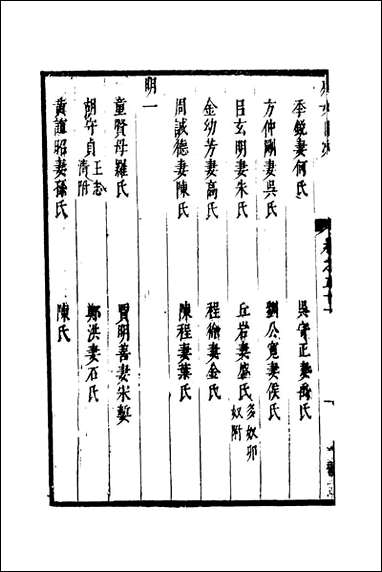 季銳妻何氏　吳守正妻禹氏
方仲剛妻吳氏　劉公寬妻侯氏
呂玄明妻朱氏　丘岩妻盛氏 多奴卯奴附
金幼芳妻高氏　程徐妻金氏
周誠德妻陳氏　陳程妻葉氏
明一
童賢母羅氏　賈明善妻宋塹
胡守貞 王志清附　鄭洪妻石氏
黃誼昭妻孫氏　陳氏